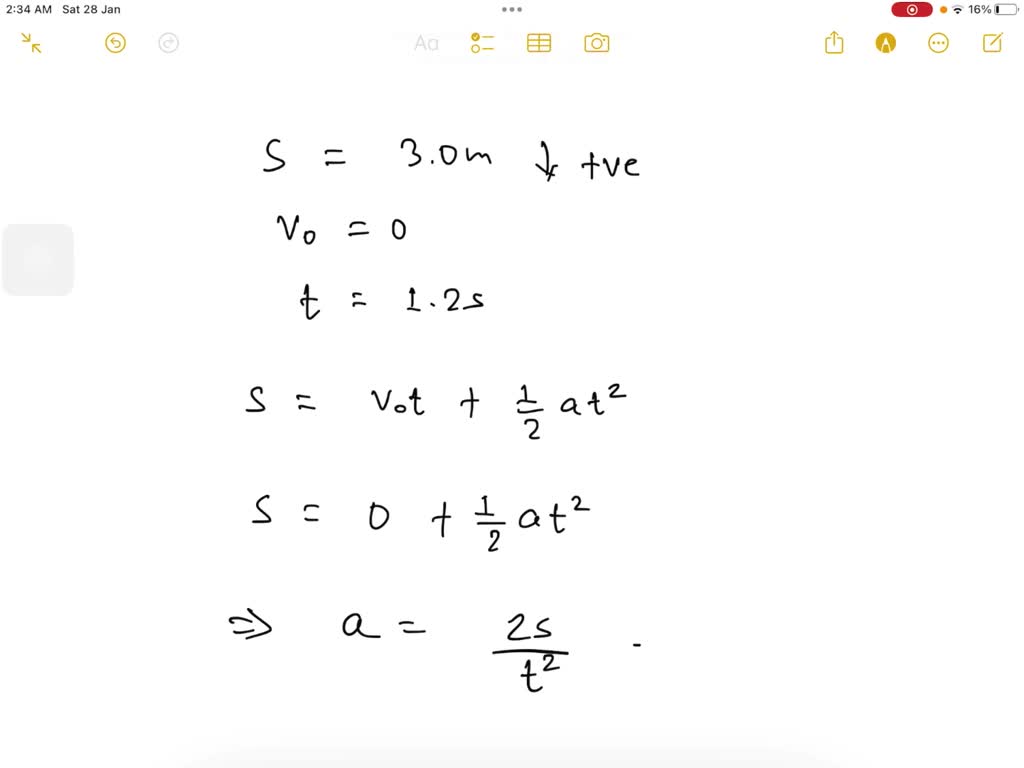 2:34 AM Sat 28 Jan
16%
Aa
S = 3.0m ↓ +ve
v₀ = 0
t = 1.2s
s = v₀t + 1/2 at²
s = 0 + 1/2 at²
⇒ a = 2s/t² -